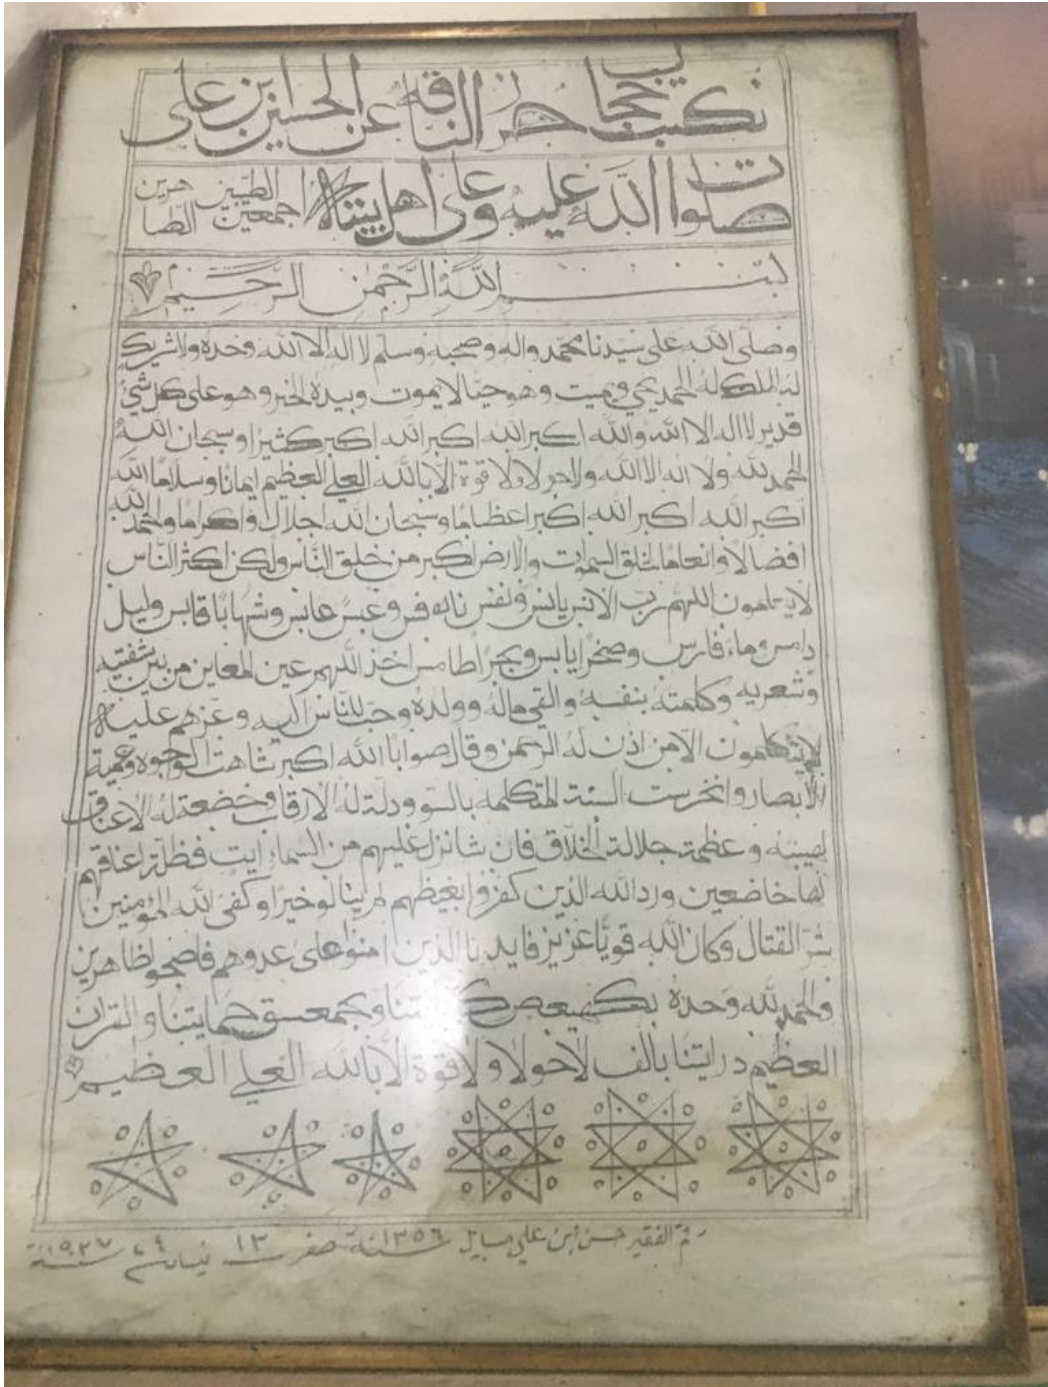 نكتب حجاب حرز الناقه عن الحسين ابن على
صلوات الله عليه وعلى اهل بيته اجمعين الطيبين الطاهرين
بسم الله الرحمن الرحيم
وصلى الله على سيدنا محمد واله وصحبه وسلم لا اله الا الله وحده ولا شريك
له الملك له الحمد يحي ويميت وهو حيا لا يموت وبيده الخير وهو على كل شئ
قدير لا اله الا الله والله اكبر الله اكبر الله اكبر كثيرا وسبحان الله
الحمد لله ولا اله الا الله ولا حولا ولا قوة الا بالله العلي العظيم ايمانا وسلاما الله
اكبر الله اكبر الله اكبر اعظاما وسبحان الله اجلالا واكراما والحمد لله
افضالا وانعاما لخلق السموات والارض اكبر من خلق الناس ولكن اكثر الناس
لا يعلمون اللهم رب وعبس عابس وشهابا قابس وليل
دامس وماء فارس وصخرا يابس وبحرا طامس اخذ اللهم عين المعاين من بين شفتيه
وشعريه وكلمته بنفسه والقي ماله وولده وحب للناس اليه عليه
لا يتكلمون الا من اذن له الرحمن وقال صوابا الله اكبر شاهت الوجوه وعمية
الابصار وانخرست السنة المتكلمه بالسو ودلة له الارقاب وخضعة له الاعناق
لهيبته وعظمة جلالة الخلاق فان شا نزل عليهم من السماء ايت فظلة اعناقهم
لها خاضعين ورد الله الذين كفروا بغيظهم لم ينالو خيرا وكفى الله المؤمنين
شر القتال وكان الله قويا عزيز فايدنا الذين امنوا على عدوهم فاضحو لظاهرين
والحمد لله وحده بكهيعص وبحمعسق حمايتنا والقران
العظيم درايتنا بالف لا حولا ولا قوة الا بالله العلي العظيم
الفقير حسن ابن علي سنة ١٣٥٦ صفر ١٣ نيسان ٢٤ سنة ١٩٣٧